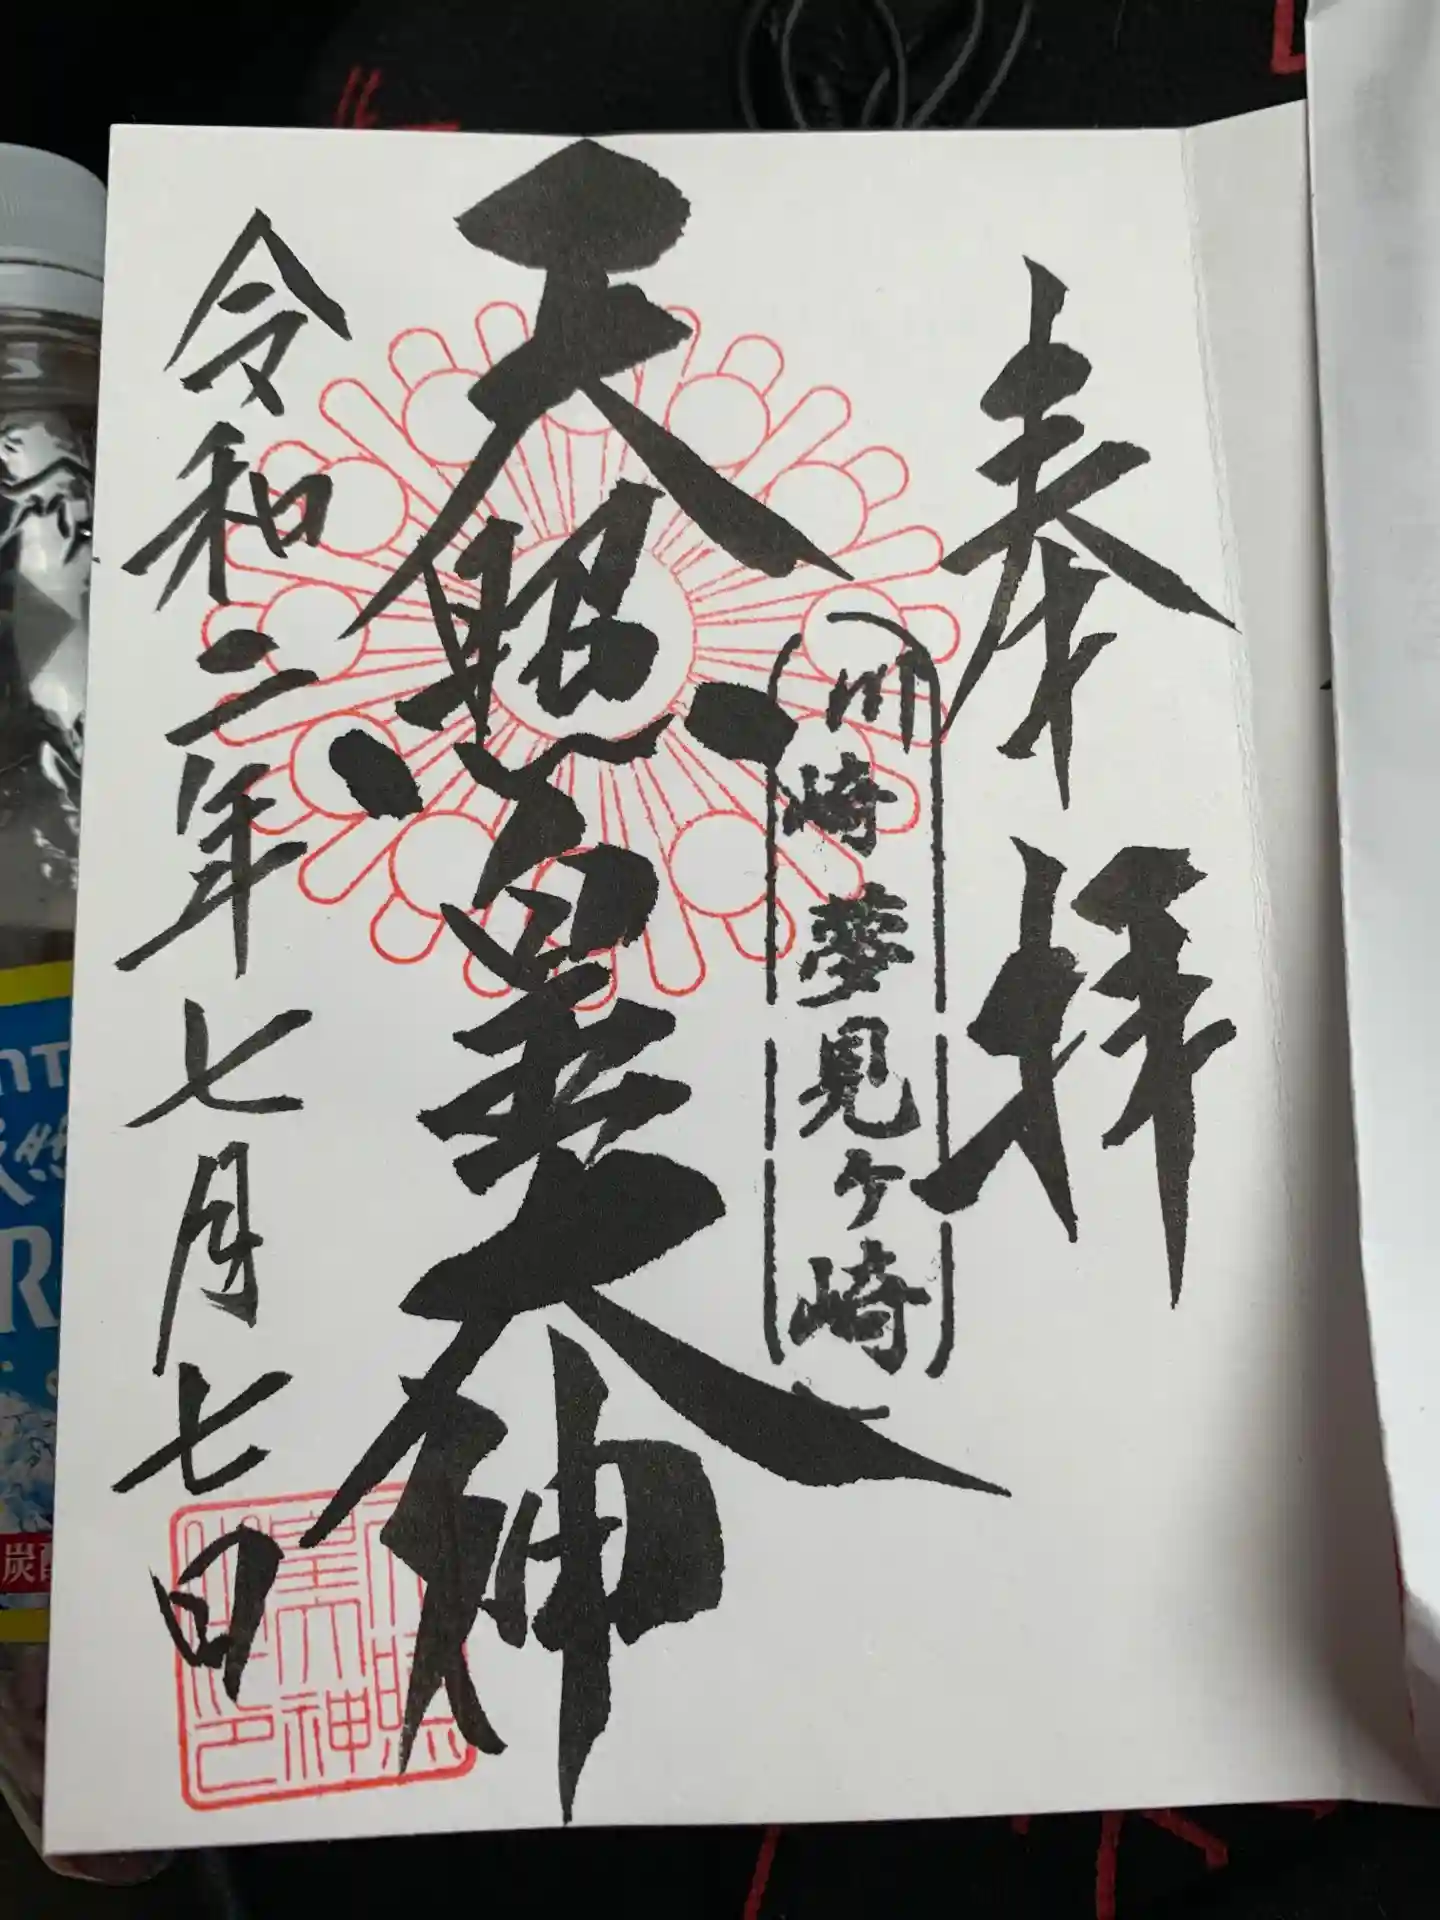 奉拝
川崎夢見ヶ崎
天照皇大神
令和二年七月七日
天照
皇大神
炭酸